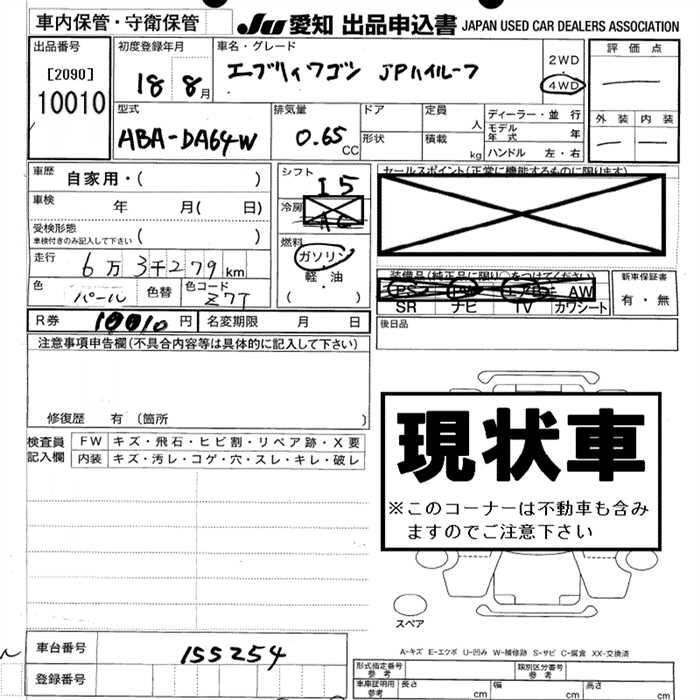 車内保管・守衛保管
JU 愛知 出品申込書 JAPAN USED CAR DEALERS ASSOCIATION
出品番号
[2090]
10010
初度登録年月
18 8月
車名・グレード
エブリィワゴン JPハイルーフ
2WD
4WD
評価点
外装 内装
型式
ABA-DA64W
排気量
0.65 CC
ドア
形状
定員
人
積載
kg
ディーラー・並行
モデル年式 年
ハンドル 左・右
車歴
自家用・( )
車検 年 月( 日)
受検形態
車検付きのみ記入して下さい ( )
走行 6万3千279km
色 パール 色替 色コード Z7T
シフト
I5
冷房
AC
燃料
ガソリン
軽・油
( )
セールスポイント(正常に機能するものに限ります)
装備品(純正品に限り○をつけてください)
PS PW エアB AW
SR ナビ TV カワシート
新車保証書
有・無
R券 10010円 名変期限 月 日
後日品
注意事項申告欄(不具合内容等は具体的に記入して下さい)
修復歴 有 (箇所 )
検査員記入欄
FW キズ・飛石・ヒビ割・リペア跡・X要
内装 キズ・汚レ・コゲ・穴・スレ・キレ・破レ
現状車
※このコーナーは不動車も含み
ますのでご注意下さい
スペア
A-キズ E-エクボ U-凹み W-補修跡 S-サビ C-腐食 XX-交換済
車台番号 155254
登録番号
形式指定番号 参考
類別区分番号 参考
車庫証明用 参考
長さ cm
幅 cm
高さ cm